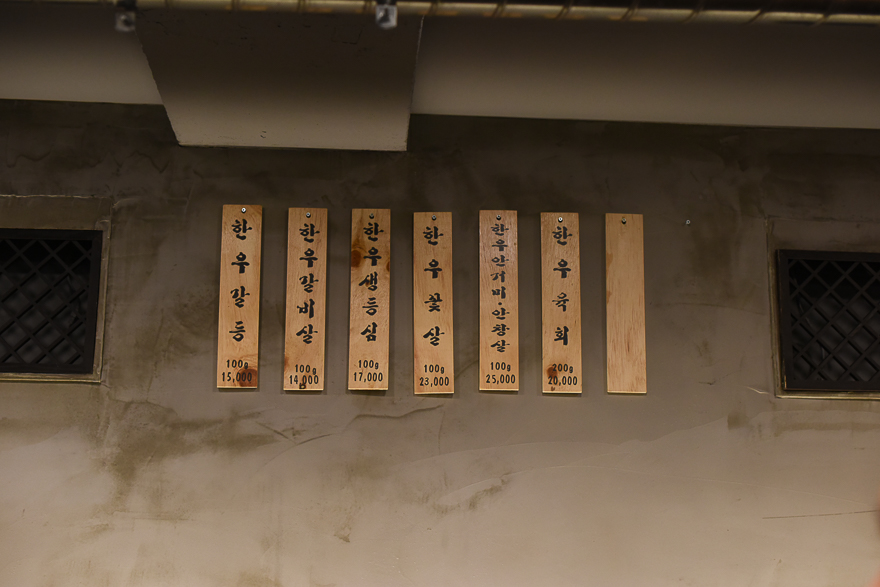 한우갈등
100g
15,000
한우갈비살
100g
14,000
한우생등심
100g
17,000
한우꽃살
100g
23,000
한우안거미·안창살
100g
25,000
한우육회
200g
20,000